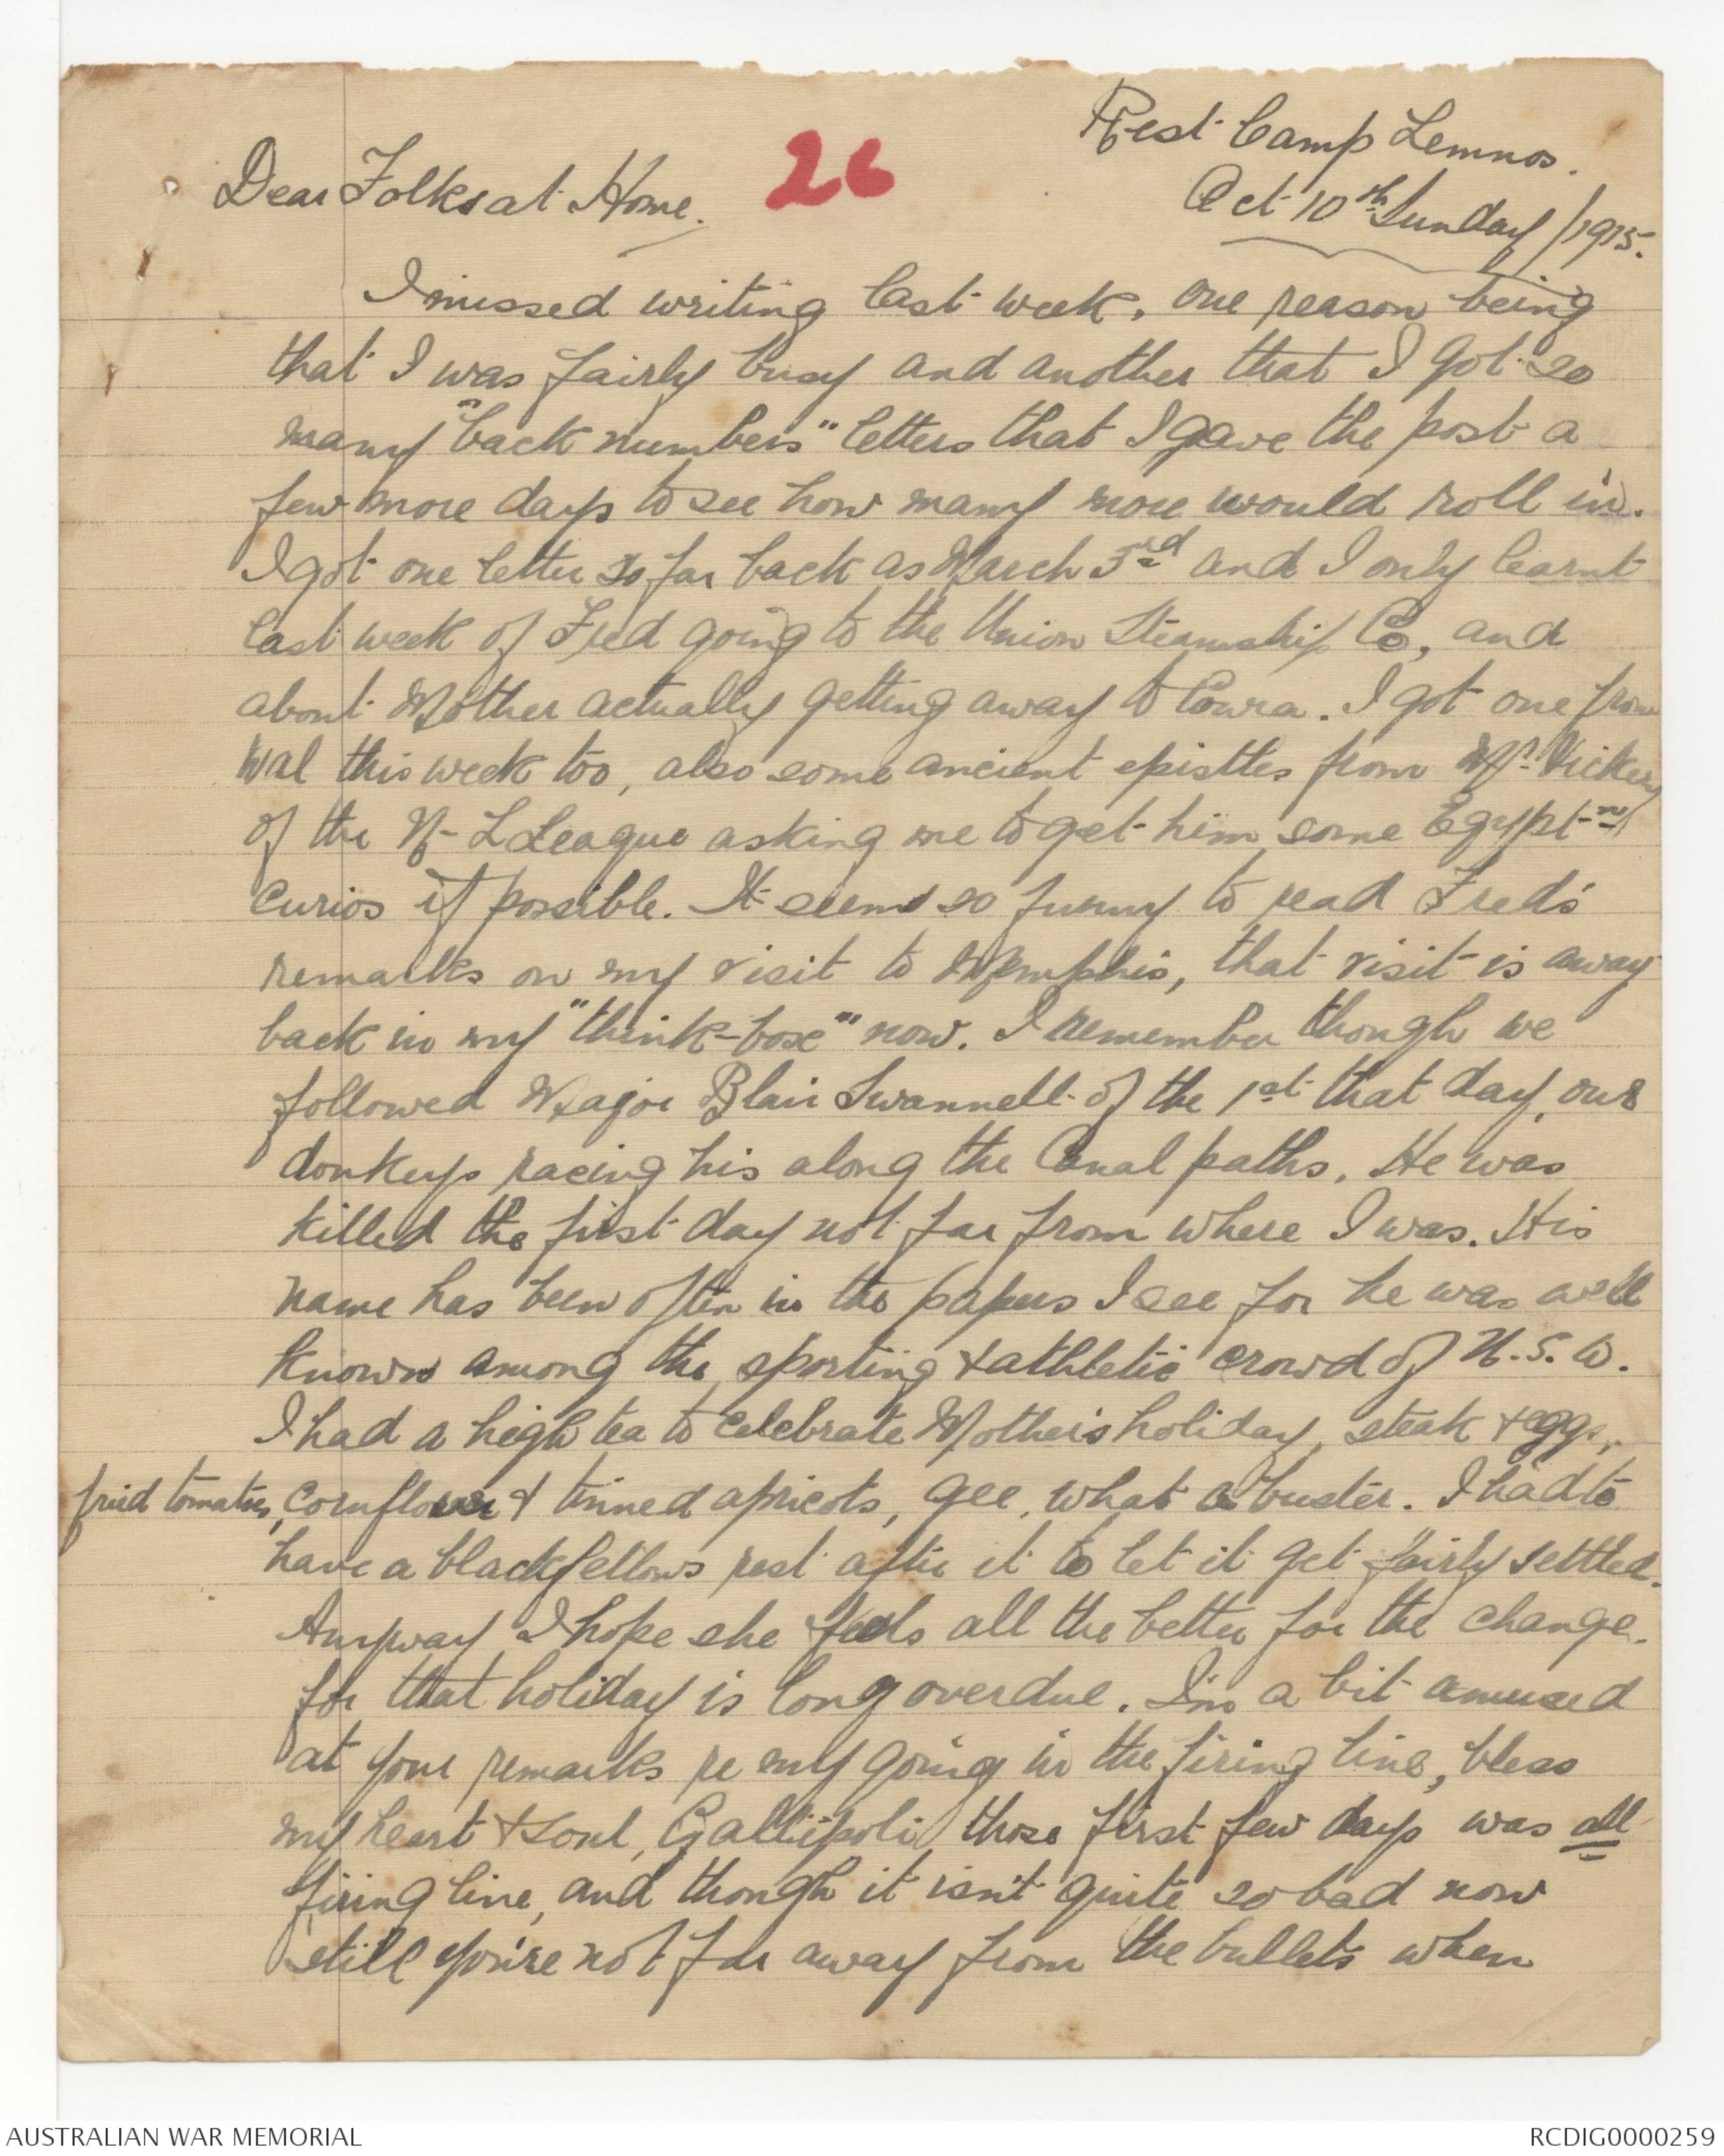 Rest Camp Lemnos.
26
Dear Folks at Home.
Oct 10th Sunday /1915.
I missed writing last week, one reason being
that I was fairly busy and another that I got so
many "back numbers" letters that I gave the post a
few more days to see how many more would roll in.
I got one letter so far back as March 3rd and I only learnt
last week of Fred going to the Union Steamship Co, and
about Mother actually getting away to Cowra. I got one from
Wal this week too, also some ancient epistles from Mr. Vickery
of the N- L League asking me to get him some Egypt-n
curios if possible. It seems so funny to read Fred's
remarks on my visit to Memphis, that visit is away
back in my "think-box" now. I remember though we
followed Major Blair Swannell of the 1st that day, our
donkeys racing his along the Canal paths. He was
killed the first day not far from where I was. His
name has been often in the papers I see for he was well
known among the sporting & athletic crowd of N.S.W.
I had a high tea to celebrate Mother's holiday, steak & eggs,
fried tomatoes, cornflour & tinned apricots, gee, what a buster. I had to
have a blackfellows rest after it to let it get fairly settled.
Anyway I hope she feels all the better for the change.
for that holiday is long overdue. I'm a bit amused
at your remarks re my going in the firing line, bless
my heart & soul, Gallipoli those first few days was all
firing line, and though it isn't quite so bad now
still you're not far away from the bullets when
AUSTRALIAN WAR MEMORIAL
RCDIG0000259